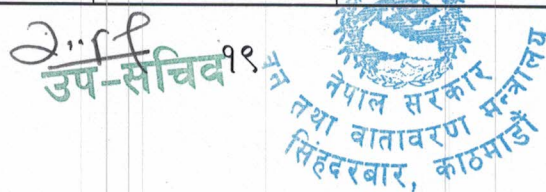 उप-सचिव १९
नेपाल सरकार
वन तथा वातावरण मन्त्रालय
सिंहदरबार, काठमाडौँ